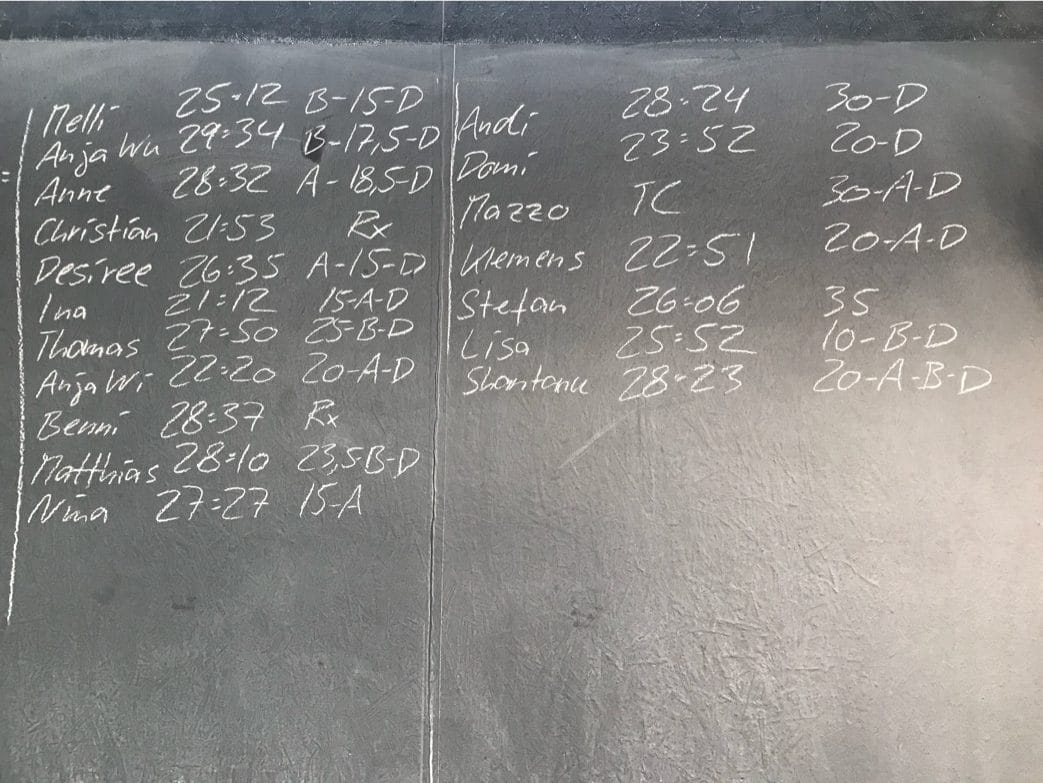 Melli 25:12 B-15-D
Anja Wu 29:34 B-17,5-D
Anne 28:32 A-18,5-D
Christian 21:53 Rx
Desiree 26:35 A-15-D
Ina 21:12 15-A-D
Thomas 27:50 25-B-D
Anja Wi 22:20 20-A-D
Benni 28:37 Rx
Matthias 28:10 23,5-B-D
Nina 27:27 15-A
Andi 28:24 30-D
Domi 23:52 20-D
Mazzo TC 30-A-D
Klemens 22:51 20-A-D
Stefan 26:06 35
Lisa 25:52 10-B-D
Shantanu 28:23 20-A-B-D